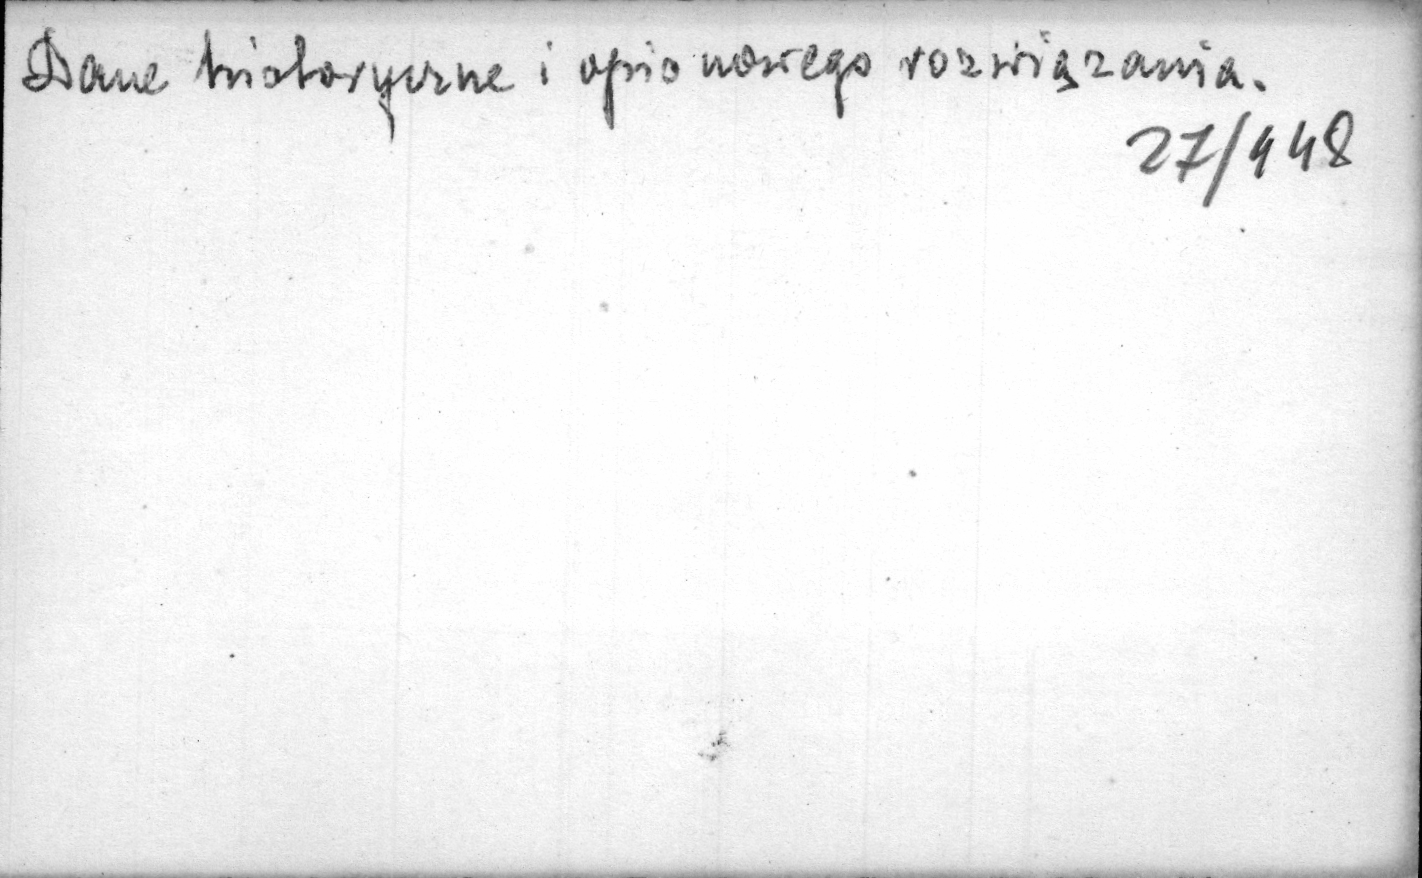 Dane historyczne i opis nowego rozwiązania.
27/448